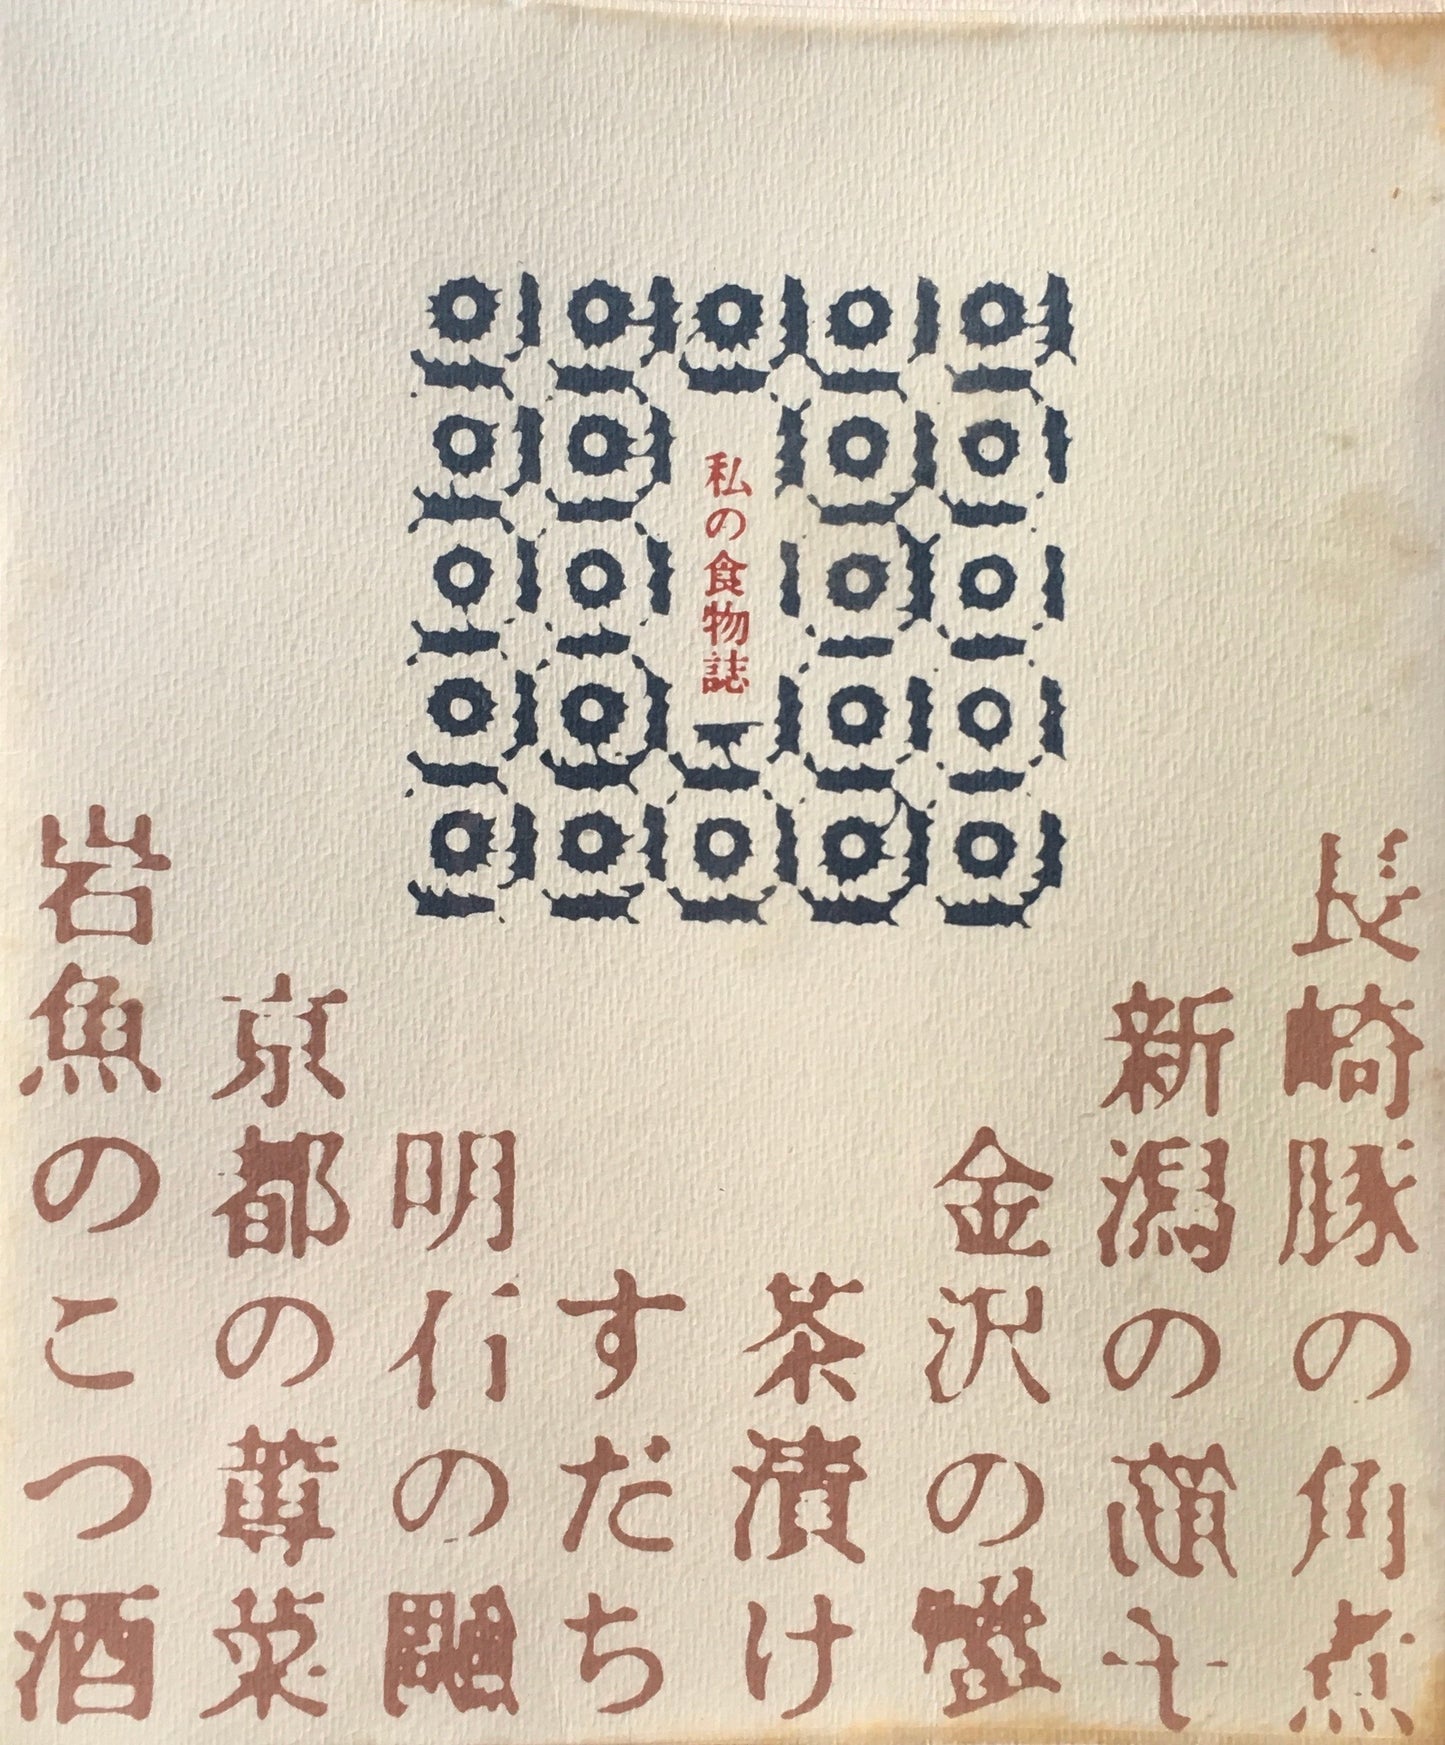 私の食物誌
長崎豚の角煮
新潟の
金沢の
茶漬け
すだち
明の
京都の蓴菜
岩魚のこつ酒